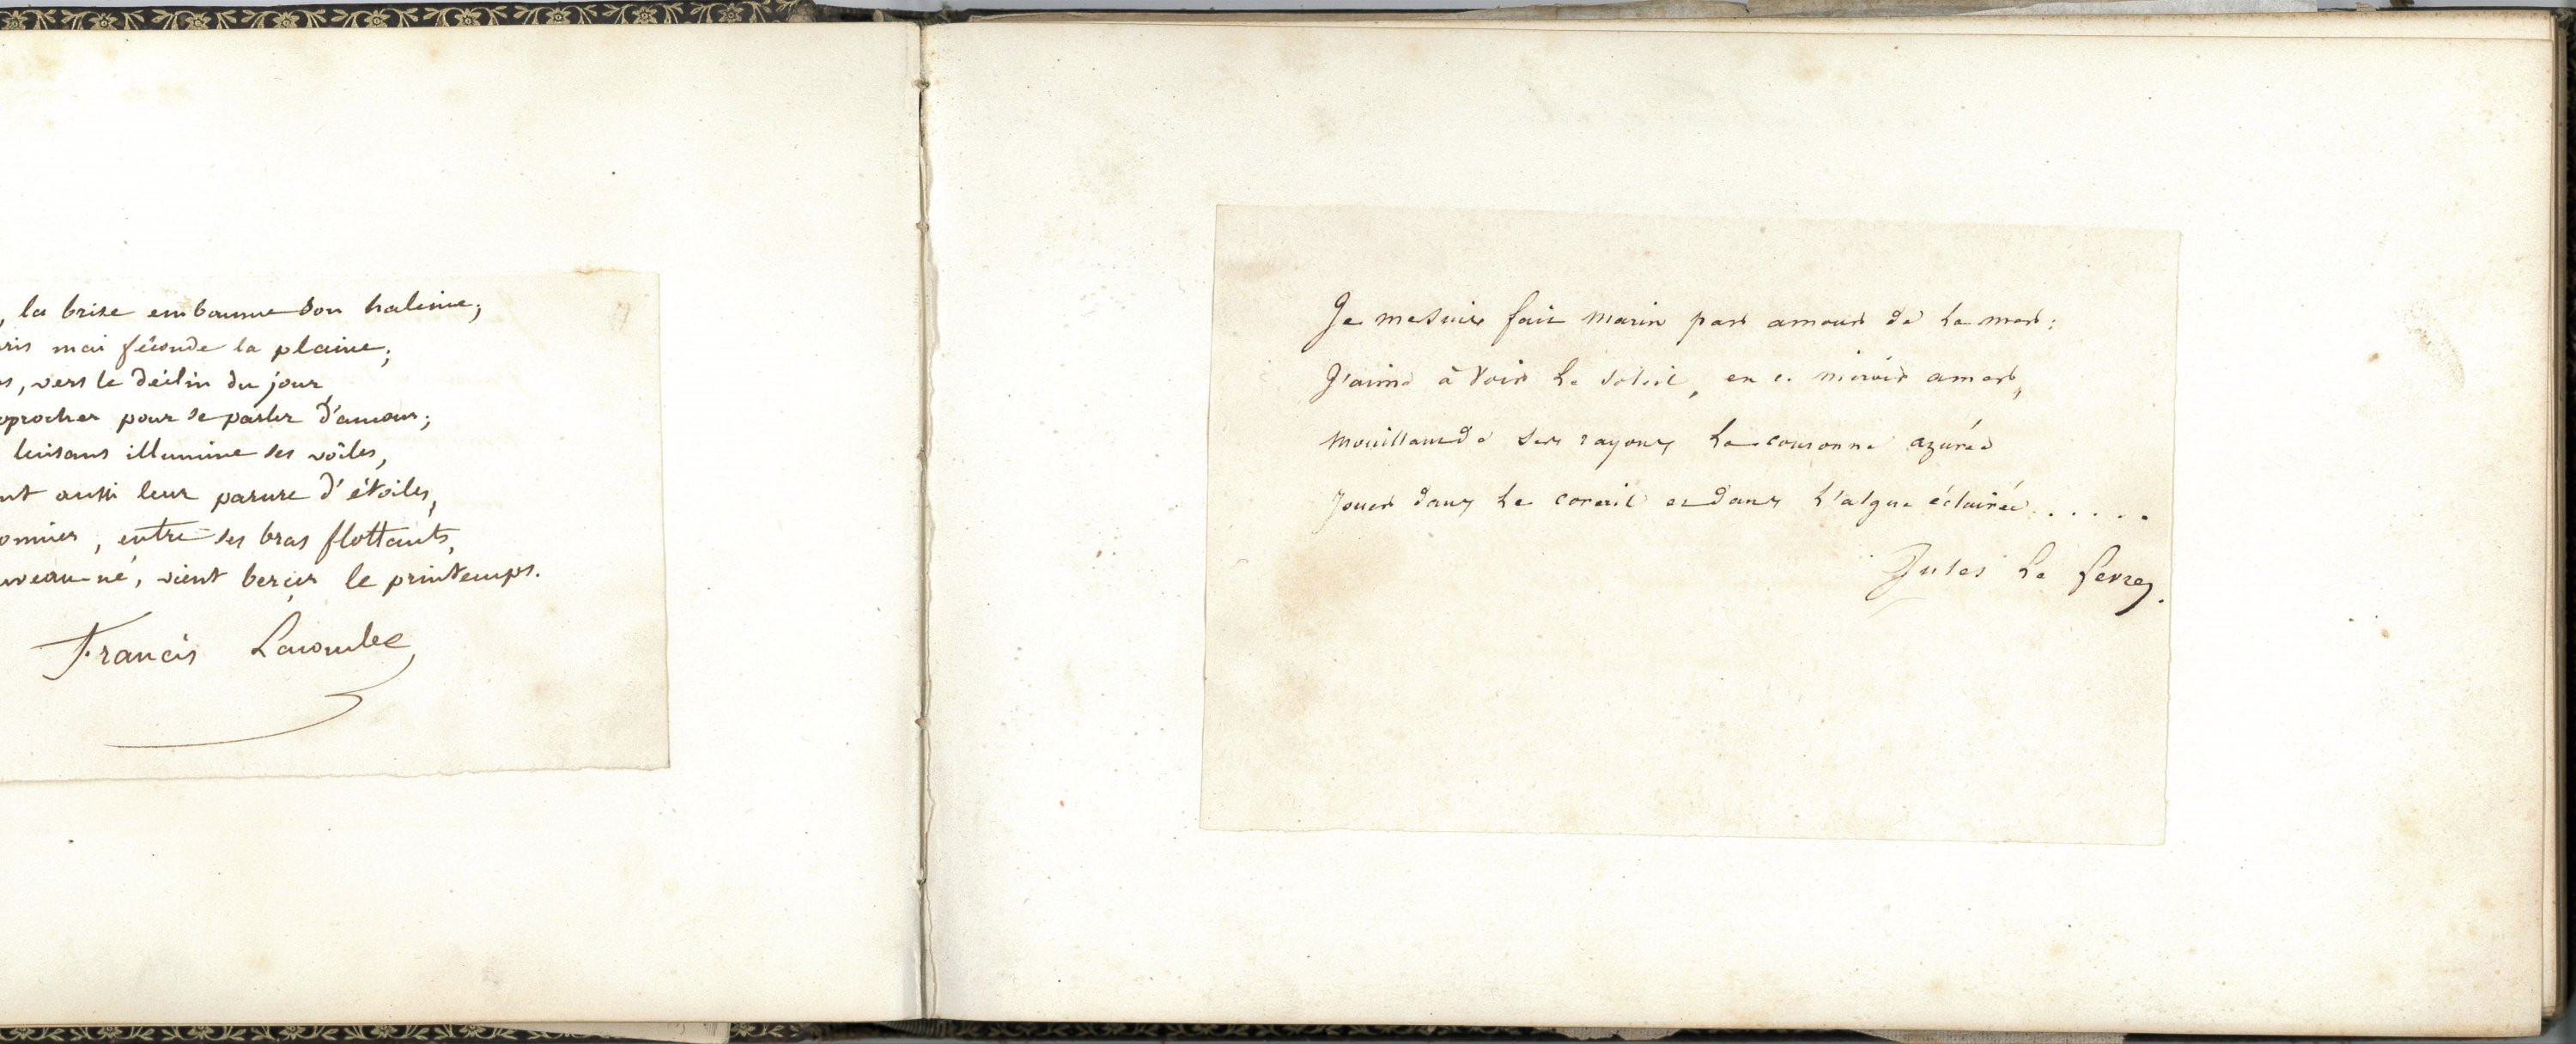 , la brise embaume son haleine;
ris mai féconde la plaine;
s, vers le déclin du jour,
pprocher pour se parler d'amour;
luisans illumine ses vôiles,
nt aussi leur parure d'étoiles,
onnier, entre ses bras flottants,
uveau-né, vient bercer le printemps.
Francis Lacombe
Je me suis fait marin par amour de la mer:
J'aime à voir le soleil, en ce miroir amer,
Mouillant de ses rayons la couronne azurée
Jouer dans le corail et dans l'algue éclairée.....
Jules Le fevre.